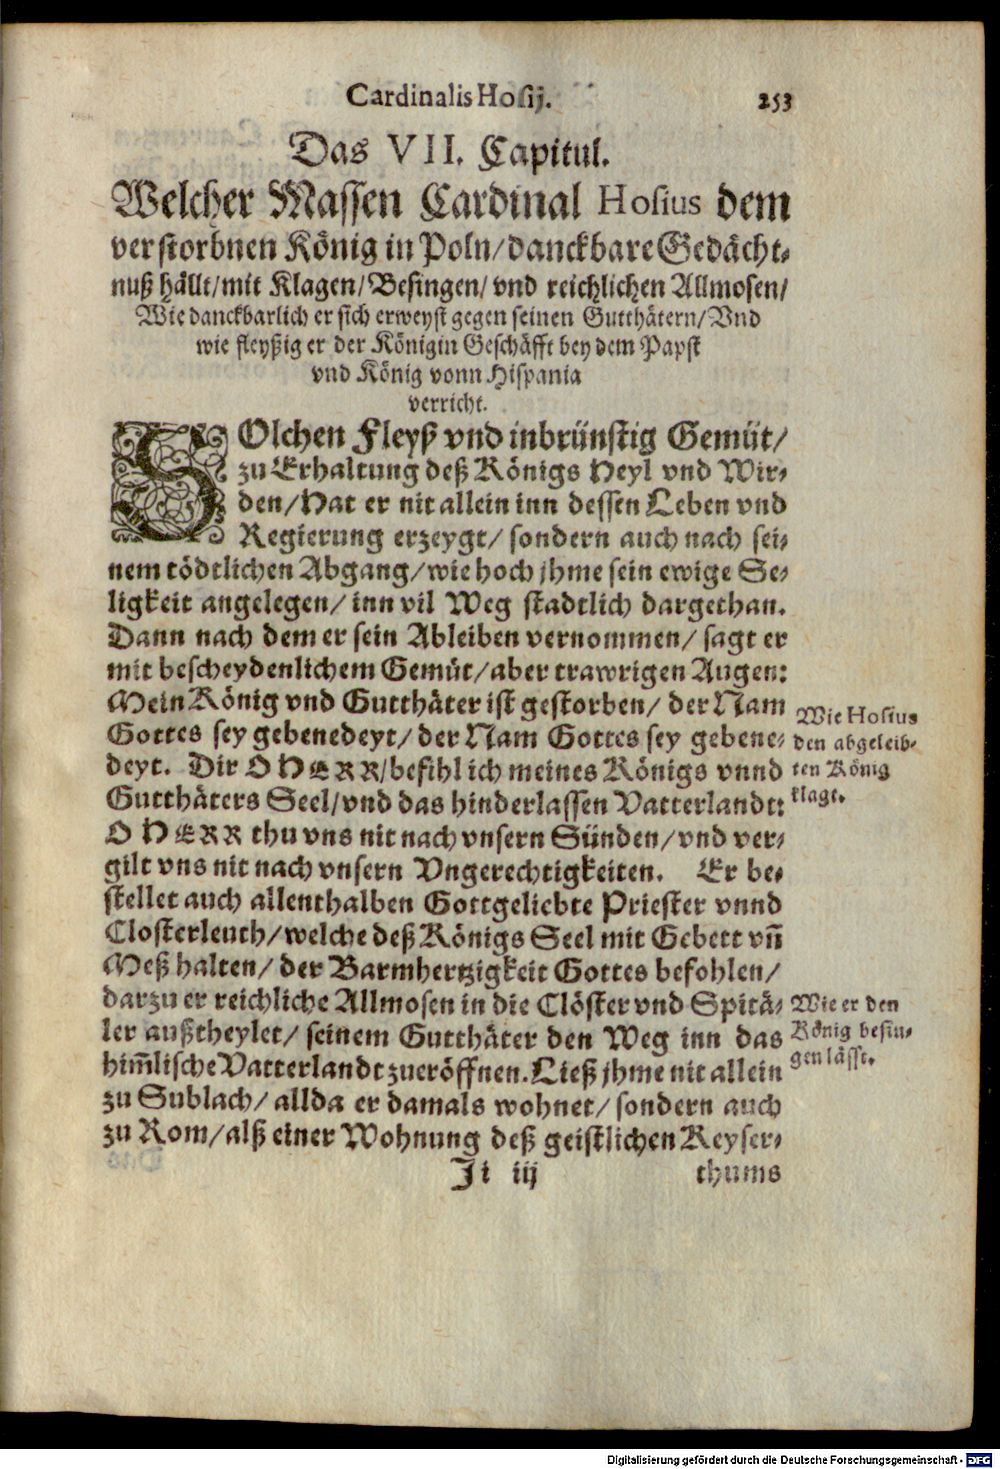 Cardinalis Hosij. 253
Das VII. Capitul.
Welcher Massen Cardinal Hosius dem
verstorbnen König in Poln/danckbare Gedächt-
nuß hällt/mit Klagen/Besingen/vnd reichlichen Allmosen/
Wie danckbarlich er sich erweyst gegen seinen Gutthätern/Vnd
wie fleyßig er der Königin Geschäfft bey dem Papst
vnd König vonn Hispania
verricht.
SOlchen Fleyß vnd inbrünstig Gemüt/
zu Erhaltung deß Königs Heyl vnd Wir-
den/Hat er nit allein inn dessen Leben vnd
Regierung erzeygt/ sondern auch nach sei-
nem tödtlichen Abgang/wie hoch jhme sein ewige Se-
ligkeit angelegen/ inn vil Weg stadtlich dargethan.
Dann nach dem er sein Ableiben vernommen/ sagt er
mit bescheydenlichem Gemüt/aber trawrigen Augen:
Mein König vnd Gutthäter ist gestorben/ der Nam
Gottes sey gebenedeyt/der Nam Gottes sey gebene-
deyt. Dir O HERR/befihl ich meines Königs vnnd
Gutthäters Seel/vnd das hinderlassen Vatterlandt:
O HERR thu vns nit nach vnsern Sünden/vnd ver-
gilt vns nit nach vnsern Vngerechtigkeiten. Er be-
stellet auch allenthalben Gottgeliebte Priester vnnd
Closterleuth/welche deß Königs Seel mit Gebett vn̄
Meß halten/ der Barmhertzigkeit Gottes befohlen/
darzu er reichliche Allmosen in die Clöster vnd Spitä-
ler außtheylet/ seinem Gutthäter den Weg inn das
him̄lische Vatterlandt zueröffnen. Ließ jhme nit allein
zu Sublach/allda er damals wohnet/ sondern auch
zu Rom/alß einer Wohnung deß geistlichen Keyser-
Ji iij thums
Wie Hosius
den abgeleib-
ten König
klagt.
Wie er den
König besin-
gen lässt.
Digitalisierung gefördert durch die Deutsche Forschungsgemeinschaft - DFG